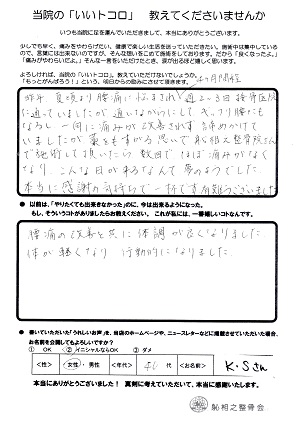 当院の「いいトコロ」 教えてくださいませんか
いつも当院に足を運んでいただきまして、本当にありがとうございます。
少しでも早く、痛みをやわらげたい、健康で楽しい生活を送っていただきたい。施術中は集中しているの
で、言葉には出来ないことですが、そういう想いをこめて施術しております。だから「良くなったよ。」
「痛みがやわらいだよ。」そんな一言をいただけたとき、涙が出るほど嬉しく思います。
よろしければ、当院の「いいトコロ」を教えていただけないでしょうか。
「もっとがんばろう！」という、明日からの励みにさせて頂きます。
昨年、夏頃より腰痛に悩まされ週2〜3回接骨医院
に通っていましたが 通いながらにして ギックリ腰にも
なるし 一向に痛みが改善されず 諦めかけて
いましたが 藁をもすがる思いで 恥相之整骨さん
で施術して頂いたら 数回で ほぼ痛みがなく
なり、こんな日が来るなんて 夢のようでした
本当に感謝の気持ちで一杯です 有難うございました
● 以前は、「やりたくても出来きなかった」のに、今は出来るようになった。
もし、そういうコトがありましたらお教えください。 これが私には、一番嬉しいコトなんです。
腰痛の改善と共に体調が良くなりました
体が軽くなり 行動的になりました
● 書いていただいた「うれしいお声」を、当店のホームページや、ニュースレターなどに掲載させていただいた場合、
お名前を公開してもよろしいですか？
① OK ② イニシャルならOK ③ ダメ
＜性＞ 女性・男性 ＜年代＞ 代 ＜お名前＞ K・Sさん
本当にありがとうございました！ 真剣に考えていただいて、本当に感謝いたします。
恥相之整骨会